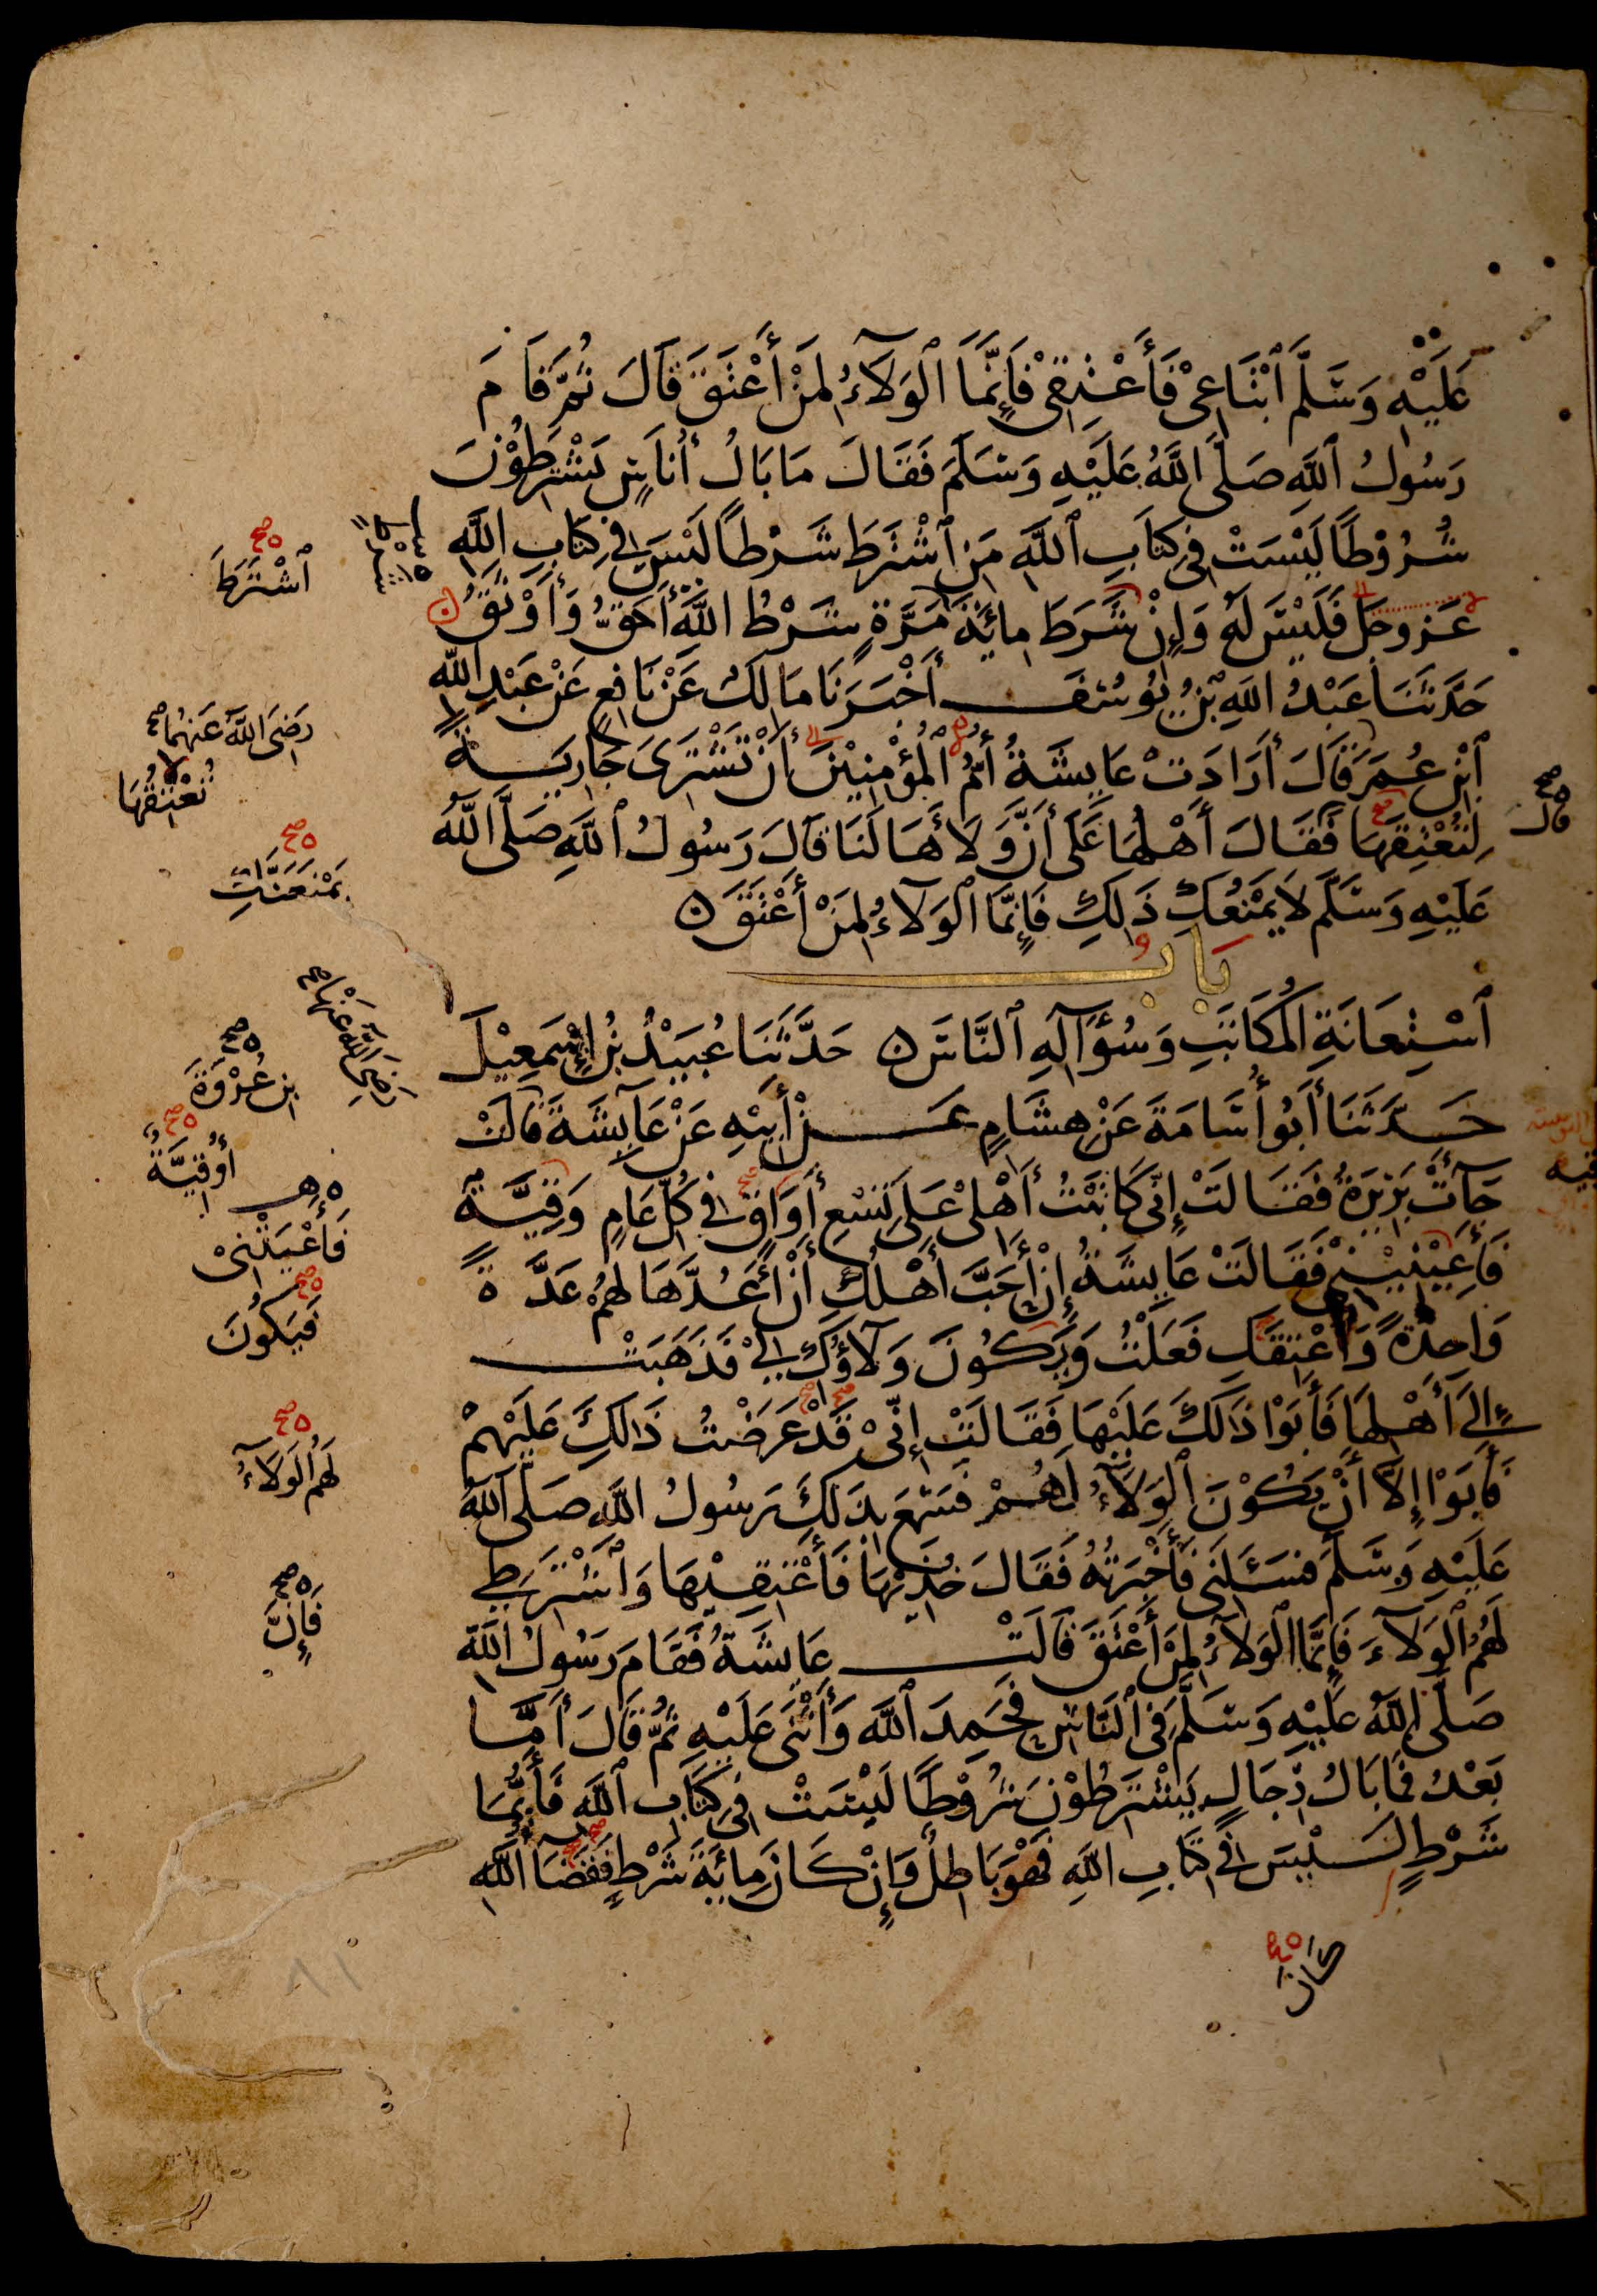 عَلَيْهِ وَسَلَّمَ ٱبْتَاعِىْ فَأَعْتِقِىْ فَإِنَّمَا ٱلْوَلَآءُ لِمَنْ أَعْتَقَ قَالَ ثُمَّ قَامَ
رَسُولُ ٱللَّهِ صَلَّى ٱللَّهُ عَلَيْهِ وَسَلَّمَ فَقَالَ مَا بَالُ أُنَاسٍ يَشْتَرِطُوْنَ
شُرُوْطًا لَيْسَتْ فِى كِتَابِ ٱللَّهِ مَنِ ٱشْتَرَطَ شَرْطًا لَيْسَ فِى كِتَابِ اللَّهِ
عَزَّ وَجَلَّ فَلَيْسَ لَهُ وَإِنْ شَرَطَ مِائَةَ مَرَّةٍ شَرْطُ اللَّهِ أَحَقُّ وَأَوْثَقُ ن
حَدَّثَنَا عَبْدُ اللَّهِ بْنُ يُوْسُفَ أَخْبَرَنَا مَالِكٌ عَنْ نَافِعٍ عَنْ عَبْدِ اللَّهِ
ٱبْنِ عُمَرَ قَالَ أَرَادَتْ عَايِشَةُ أُمُّ الْمُؤْمِنِيْنَ أَنْ تَشْتَرِىَ جَارِيَةً
لِتُعْتِقَهَا فَقَالَ أَهْلُهَا عَلَى أَنَّ وَلَاءَهَا لَنَا قَالَ رَسُولُ ٱللَّهِ صَلَّى اللَّهُ
عَلَيْهِ وَسَلَّمَ لَا يَمْنَعُكِ ذَلِكِ فَإِنَّمَا ٱلْوَلَآءُ لِمَنْ أَعْتَقَ ن
بَابُ
ٱسْتِعَانَةِ الْمُكَاتَبِ وَسُؤَالِهِ ٱلنَّاسَ ن حَدَّثَنَا عُبَيْدُ بْنُ إِسْمَعِيْلَ
حَدَّثَنَا أَبُو أُسَامَةَ عَنْ هِشَامٍ عَنْ أَبِيْهِ عَنْ عَآيِشَةَ قَالَتْ
جَآءَتْ بَرِيْرَةُ فَقَالَتْ إِنِّى كَاتَبْتُ أَهْلِىْ عَلَى تِسْعِ أَوَاقٍ فِى كُلِّ عَامٍ وَقِيَّةٌ
فَأَعِيْنِيْنِىْ فَقَالَتْ عَايِشَةُ إِنْ أَحَبَّ أَهْلُكِ أَنْ أَعُدَّهَا لَهُمْ عَدَّةً
وَاحِدَةً وَأُعْتِقَكِ فَعَلْتُ وَيَكُوْنَ وَلَآؤُكِ لِىْ فَذَهَبَتْ
إِلَى أَهْلِهَا فَأَبَوْا ذَالِكَ عَلَيْهَا فَقَالَتْ إِنِّىْ قَدْ عَرَضْتُ ذَالِكَ عَلَيْهِمْ
فَأَبَوْا إِلَّا أَنْ يَكُوْنَ ٱلْوَلَآءُ لَهُمْ فَسَمِعَ بِذَلِكَ رَسُولُ اللَّهِ صَلَّى اللَّهُ
عَلَيْهِ وَسَلَّمَ فَسَئَلَنِى فَأَخْبَرْتُهُ فَقَالَ خُذِيْهَا فَأَعْتِقِيْهَا وَٱشْتَرِطِى
لَهُمُ ٱلْوَلَآءَ فَإِنَّمَا ٱلْوَلَآءُ لِمَنْ أَعْتَقَ قَالَتْ عَايِشَةُ فَقَامَ رَسُولُ اللَّهِ
صَلَّى اللَّهُ عَلَيْهِ وَسَلَّمَ فِى ٱلنَّاسِ فَحَمِدَ ٱللَّهَ وَأَثْنَى عَلَيْهِ ثُمَّ قَالَ أَمَّا
بَعْدُ فَمَا بَالُ رِجَالٍ يَشْتَرِطُوْنَ شُرُوْطًا لَيْسَتْ فِى كِتَابِ ٱللَّهِ فَأَيُّمَا
شَرْطٍ لَيْسَ فِى كِتَابِ اللَّهِ فَهُوَ بَاطِلٌ وَإِنْ كَانَ مِائَةَ شَرْطٍ فَقَضَآءُ اللَّهِ
ٱشْتَرَطَ
رَضِىَ اللَّهُ عَنْهُمَا
تُعْتِقُهَا
قال
يَمْنَعَنَّكِ
رَضِىَ اللَّهُ عَنْهَا
ابن عُرْوَةَ
أُوقِيَّةٌ
فَأَعْيَتْنِىْ
فَيَكُونَ
لَهُمُ الْوَلَآءُ
فَإِنَّ
كَانَ